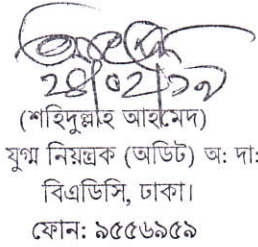 ২৪/০২/১৯
(শহিদুল্লাহ আহমেদ)
যুগ্ম নিয়ন্ত্রক (অডিট) অ: দা:
বিএডিসি, ঢাকা।
ফোন: ৯৫৫৬৯৫৯